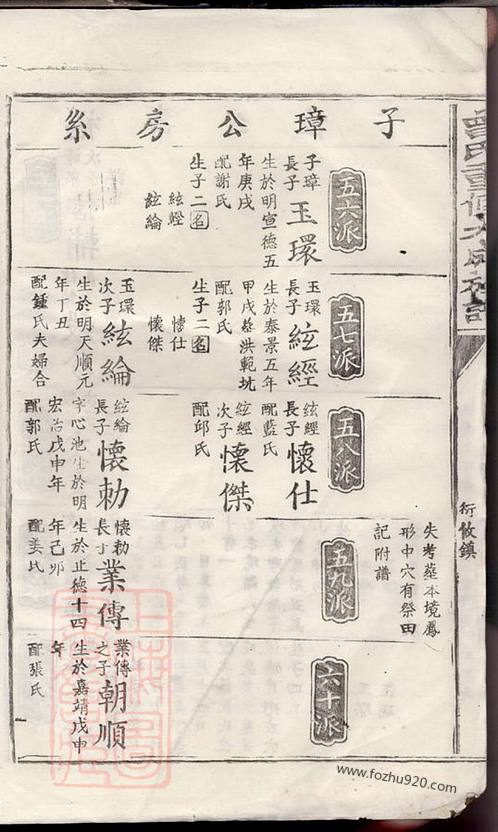 子璋公房系
五六派
子璋
長子
玉環
生於明宣德五
年庚戌
配謝氏
生子二名
絃經
絃綸
五七派
玉環
長子
絃經
生於泰景五年
甲戌葬洪範坑
配郭氏
生子二名
懷仕
懷傑
玉環
次子
絃綸
生於明天順元
年丁丑
配鍾氏夫婦合
五八派
絃經
長子
懷仕
配藍氏
絃經
次子
懷傑
配邱氏
絃綸
長子
懷勅
字心池生於明
宏治戊申年
配郭氏
失考葬本境鳳
形中穴有祭田
記附譜
五九派
懷勅
長子
業傳
生於正德十四
年己卯
配姜氏
六十派
業傳
之子
朝順
生於嘉靖戊申
年
配張氏
衍攸鎮
www.fozhu920.com